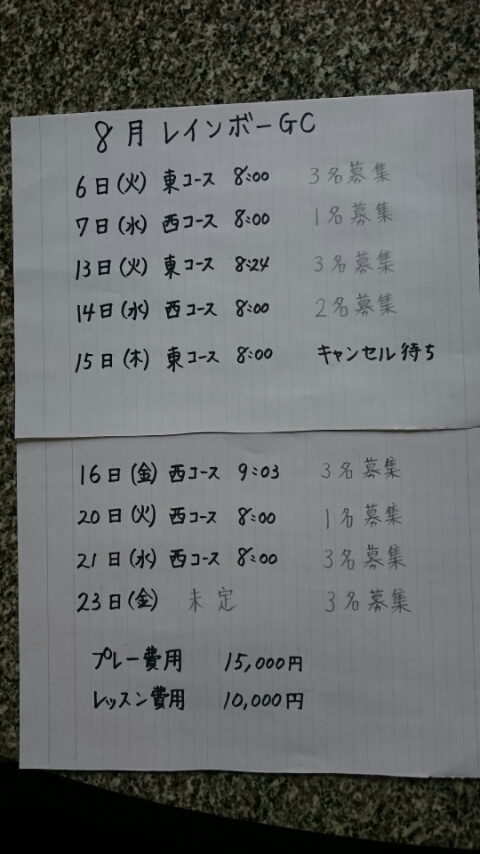 8月 レインボーGC
6日(火) 東コース 8:00 3名募集
7日(水) 西コース 8:00 1名募集
13日(火) 東コース 8:24 3名募集
14日(水) 西コース 8:00 2名募集
15日(木) 東コース 8:00 キャンセル待ち
16日(金) 西コース 9:03 3名募集
20日(火) 西コース 8:00 1名募集
21日(水) 西コース 8:00 3名募集
23日(金) 未定 3名募集
プレー費用 15,000円
レッスン費用 10,000円